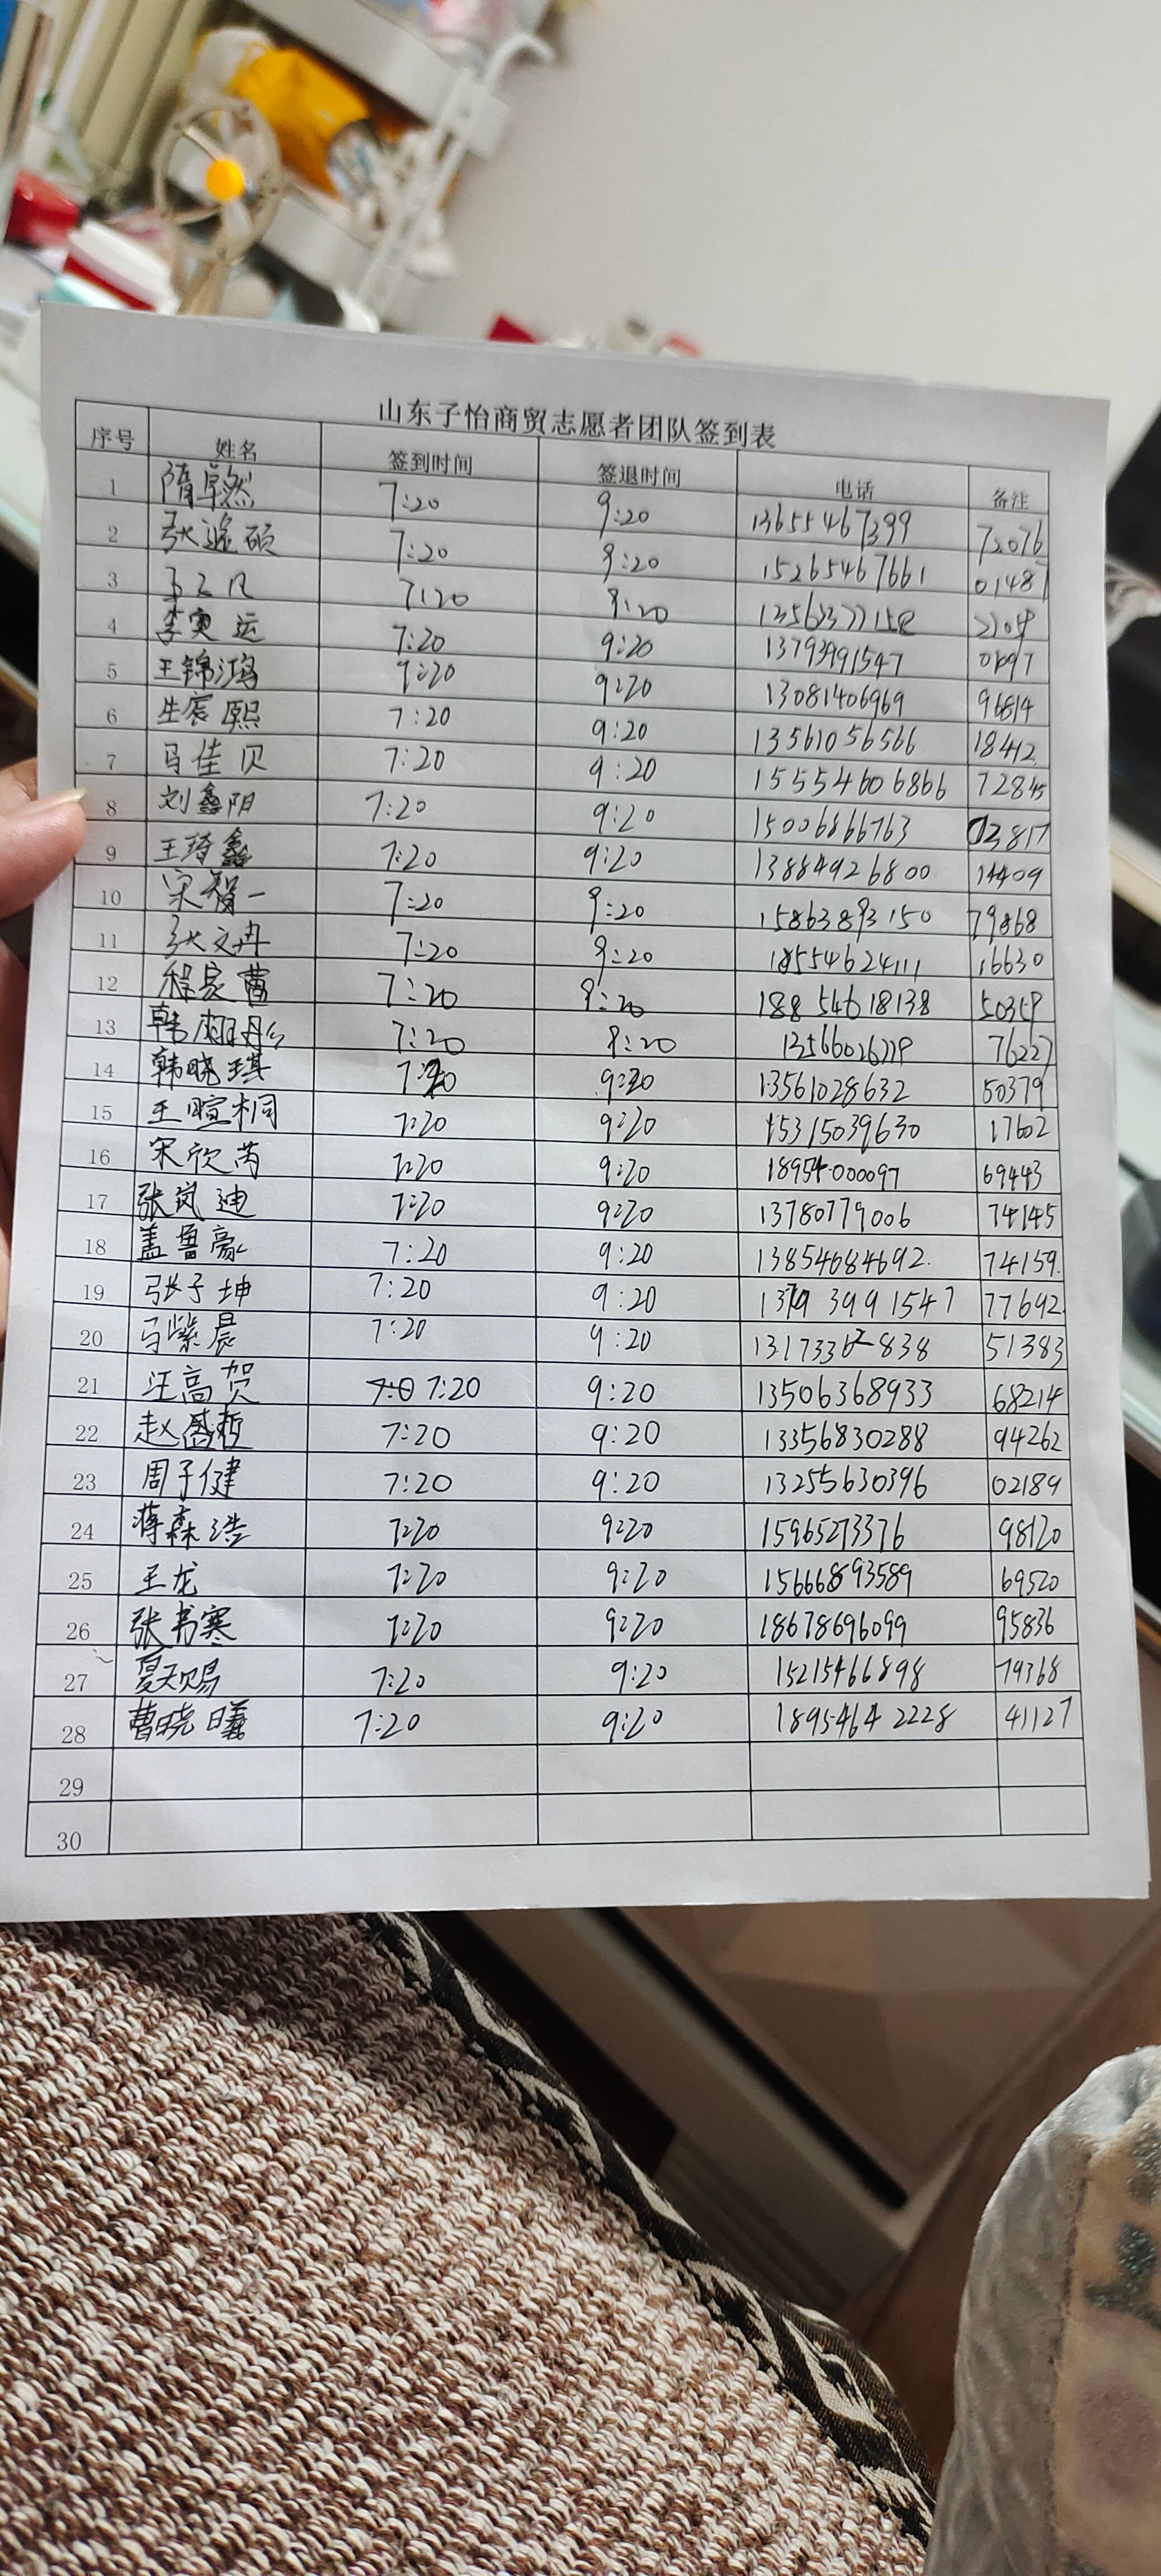 山东子怡商贸志愿者团队签到表
序号 姓名 签到时间 签退时间 电话 备注
1 隋卓然 7:20 9:20 13655467399 72076
2 张 硕 7:20 9:20 15265467661 01481
3 7:20 9:20
4 李 运 7:20 9:20 13793991547
5 王锦鸿 7:20 9:20 13081406969 96814
6 生宸熙 7:20 9:20 13561056566 18412
7 马佳贝 7:20 9:20 15554606866 72845
8 刘鑫阳 7:20 9:20 15006866763 03817
9 王琦鑫 7:20 9:20 13884926800 14409
10 宋智一 7:20 9:20 15863893150 79868
11 张文冉 7:20 9:20 18554624111 16630
12 程家 7:20 9:20 18854618138 50359
13 韩 7:20 9:20 76227
14 韩晓琪 7:20 9:20 13561028632 50379
15 王暄桐 7:20 9:20 15315039630 17602
16 宋欣芮 7:20 9:20 18954000097 69443
17 张岚迪 7:20 9:20 13780779006 74145
18 盖鲁豪 7:20 9:20 13854684692. 74159.
19 张子坤 7:20 9:20 13793991547 77692
20 马紫晨 7:20 9:20 13173362838 51383
21 汪高贺 7:20 9:20 13506368933 68214
22 赵盛哲 7:20 9:20 13356830288 94262
23 周子健 7:20 9:20 13255630396 02189
24 蒋森浩 7:20 9:20 15965273376 98120
25 王龙 7:20 9:20 15666893589 69520
26 张书寒 7:20 9:20 18678696099 95836
27 夏天赐 7:20 9:20 15215466898 79368
28 曹晓曦 7:20 9:20 18954642228 41127
29
30